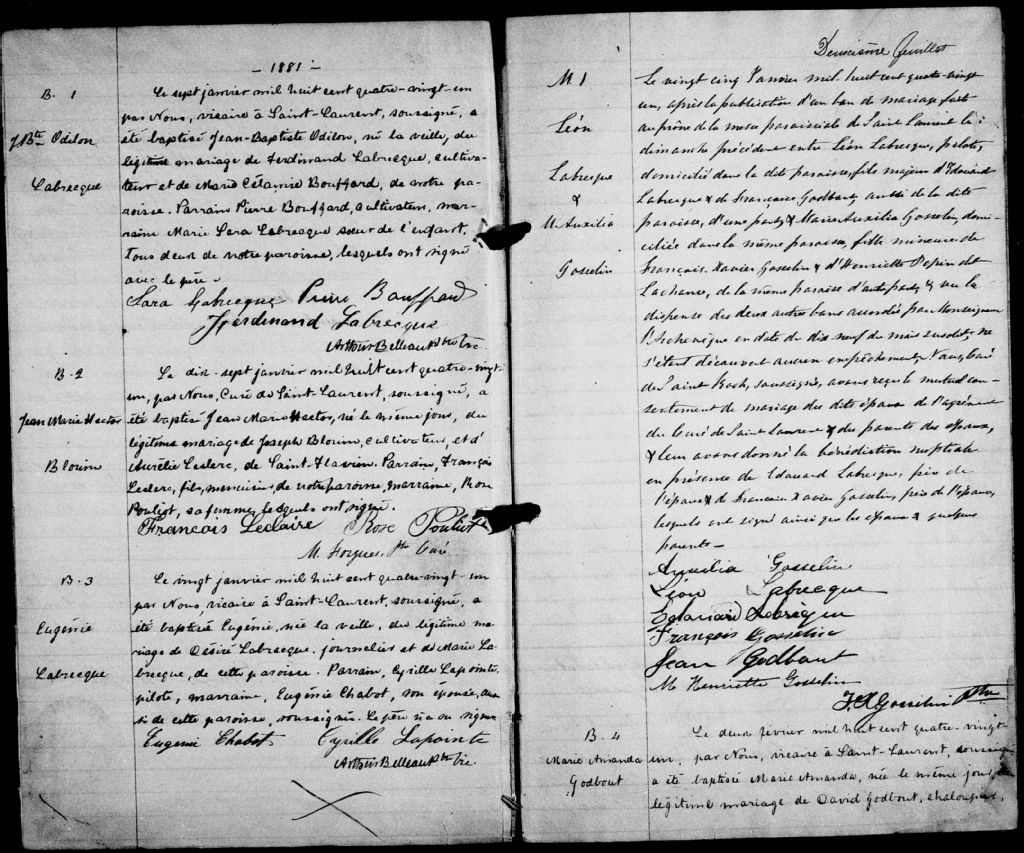 - 1881 -
B. 1
J Bte Odilon
Labrecque
Le sept janvier mil huit cent quatre-vingt-un
par Nous, vicaire à Saint-Laurent, soussigné, a
été baptisé Jean-Baptiste Odilon, né la veille, du
légitime mariage de Ferdinand Labrecque, cultiva-
teur et de Marie Célamire Bouffard, de notre pa-
roisse. Parrain Pierre Bouffard, cultivateur, mar-
raine Marie Sara Labrecque sœur de l'enfant,
tous deux de notre paroisse, lesquels ont signé
avec le père.
Sara Labrecque Pierre Bouffard
Ferdinand Labrecque
Arthur Belleau Ptre Vic.
B-2
Jean Marie Hector
Blouin
Le dix-sept janvier mil huit cent quatre-vingt-
un, par Nous, Curé de Saint-Laurent, soussigné, a
été baptisé Jean Marie Hector, né le même jour, du
légitime mariage de Joseph Blouin, cultivateur, et d'
Aurélie Leclerc, de Saint-Flavien. Parrain, François
Leclerc, fils, menuisier, de notre paroisse, marraine, Rose
Pouliot, sa femme, lesquels ont signé.
François Leclaire Rose Pouliot
M. Forgues, Ptre Curé
B-3
Eugénie
Labrecque
Le vingt janvier mil huit cent quatre-vingt-un
par Nous, vicaire à Saint-Laurent, soussigné, a
été baptisée Eugénie, née la veille, du légitime ma-
riage de Désiré Labrecque, journalier et de Marie La-
brecque, de cette paroisse. Parrain, Cyrille Lapointe,
pilote, marraine, Eugénie Chabot, son épouse, aus-
si de cette paroisse, soussignés. Le père n'a su signer
Eugénie Chabot Cyrille Lapointe
Arthur Belleau Ptre Vic.
Deuxième feuillet
M 1
Léon
Labrecque
&
M. Auxilia
Gosselin
Le vingt cinq Janvier mil huit cent quatre-vingt
un, après la publication d'un ban de mariage fait
au prône de la messe paroissiale de Saint Laurent le
dimanche précédent entre Léon Labrecque, pilote,
domicilié dans la dite paroisse, fils majeur d'Edouard
Labrecque & de Françoise Godbout aussi de la dite
paroisse, d'une part, & Marie Auxilia Gosselin, domi-
ciliée dans la même paroisse, fille mineure de
François-Xavier Gosselin & d'Henriette Pepin dit
Lachance, de la même paroisse d'autre part, & vu la
dispense des deux autres bans accordés par Monseigneur
l'Archevêque en date du dix neuf du mois susdit; ne
s'étant découvert aucun empêchement, Nous, Curé
de Saint Roch, soussigné, avons reçu le mutuel con-
sentement de mariage des dits époux de l'agrément
du Curé de Saint Laurent & des parents des époux,
& leur avons donné la bénédiction nuptiale
en présence de Edouard Labrecque, père de
l'époux & de François Xavier Gosselin, père de l'épouse,
lesquels ont signé ainsi que les époux & quelques
parents -
Auxilia Gosselin
Léon Labrecque
Edouard Labrèque
François Gosselin
Jean Godbout
M Henriette Gosselin
F. X Gosselin Ptre
B-4
Marie Amanda
Godbout
Le deux février mil huit cent quatre-vingt-
un, par Nous, vicaire à Saint-Laurent, soussigné
a été baptisée Marie Amanda, née le même jour, du
légitime mariage de David Godbout, chaloupier,